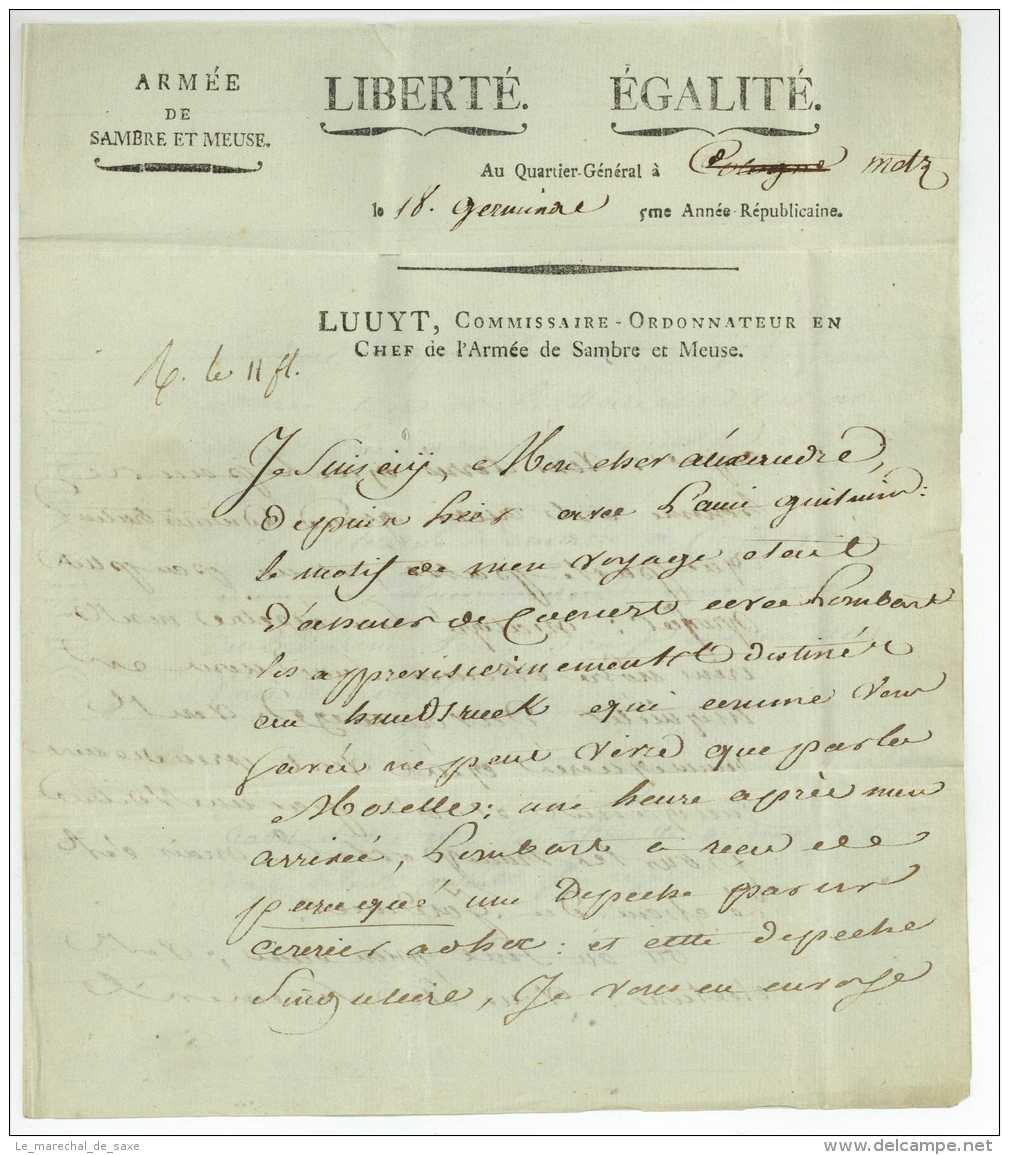 ARMÉE
DE
SAMBRE ET MEUSE.
LIBERTÉ. ÉGALITÉ.
Au Quartier-Général à Cologne Metz
le 18. Germinal 5me Année Républicaine.
LUUYT, COMMISSAIRE-ORDONNATEUR EN
CHEF de l'Armée de Sambre et Meuse.
R. le 11 fl.
Je suis icÿ, Mon cher alexandre,
depuis hier avec l'ami
le motif de mon voyage etait
d'assurer de Concert avec Lombart
les approvisionnements destinés
au hundsruck qui comme vous
savés ne peut vivre que par la
Moselle; une heure après mon
arrivée, Lombart à recu
une depeche par un
courier : et cette depeche
Singuliere, Je vous en envoye
Le_marechal_de_saxe
delcampe.net